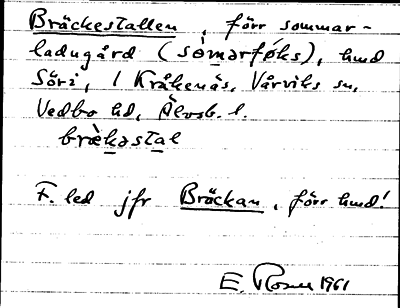 Bräckestallen, förr sommar-
ladugård (sòmərføks), hmd
Söri, 1 Kråkenäs, Vårviks sn,
Vedbo hd, Älvsb. l.
brækəstal
F. led jfr Bräckan, förr hmd!
E. Rosell 1961